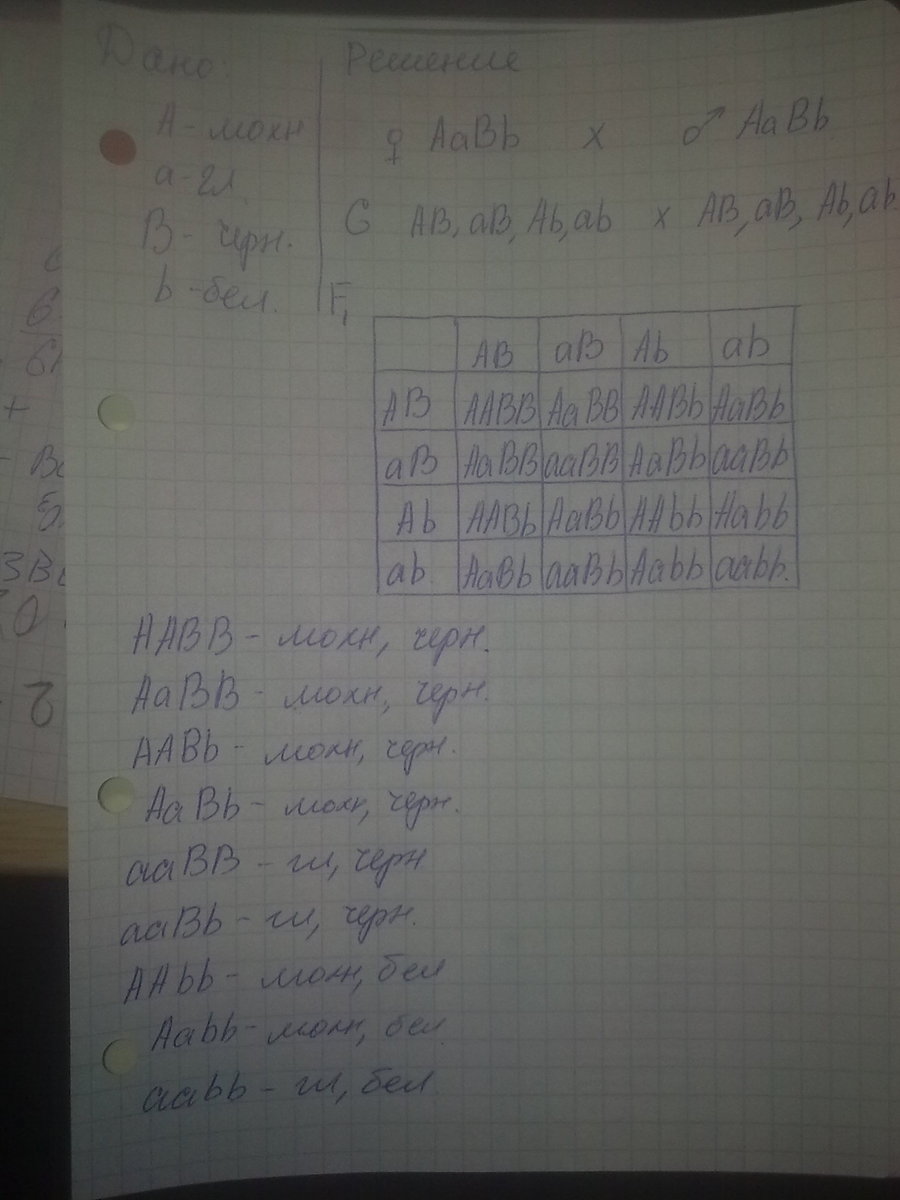 Дано: Решение
А - мохн
♀ AaBb x ♂ AaBb
а - гл.
G AB, aB, Ab, ab x AB, aB, Ab, ab.
В - черн.
b - бел.
F₁
AB aB Ab ab
AB AABB AaBB AABb AaBb
aB AaBB aaBB AaBb aaBb
Ab AABb AaBb AAbb Aabb
ab. AaBb aaBb Aabb aabb.
AABB - мохн, черн.
AaBB - мохн, черн.
AABb - мохн, черн.
AaBb - мохн, черн.
aaBB - гл, черн
aaBb - гл, черн.
AAbb - мохн, бел
Aabb - мохн, бел
aabb - гл, бел.